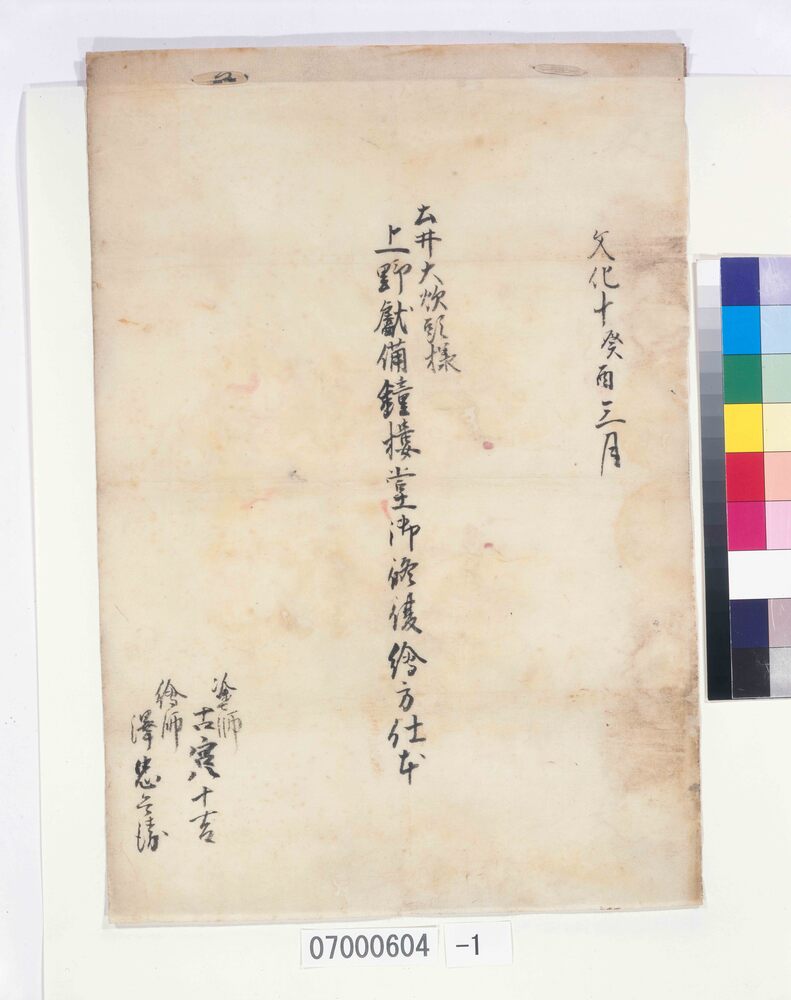 文化十癸酉三月
土井大炊頭様
上野獻備鐘楼堂御修復繪方仕本
塗師
古宮八十吉
繪師
澤忠兵衛
07000604 -1